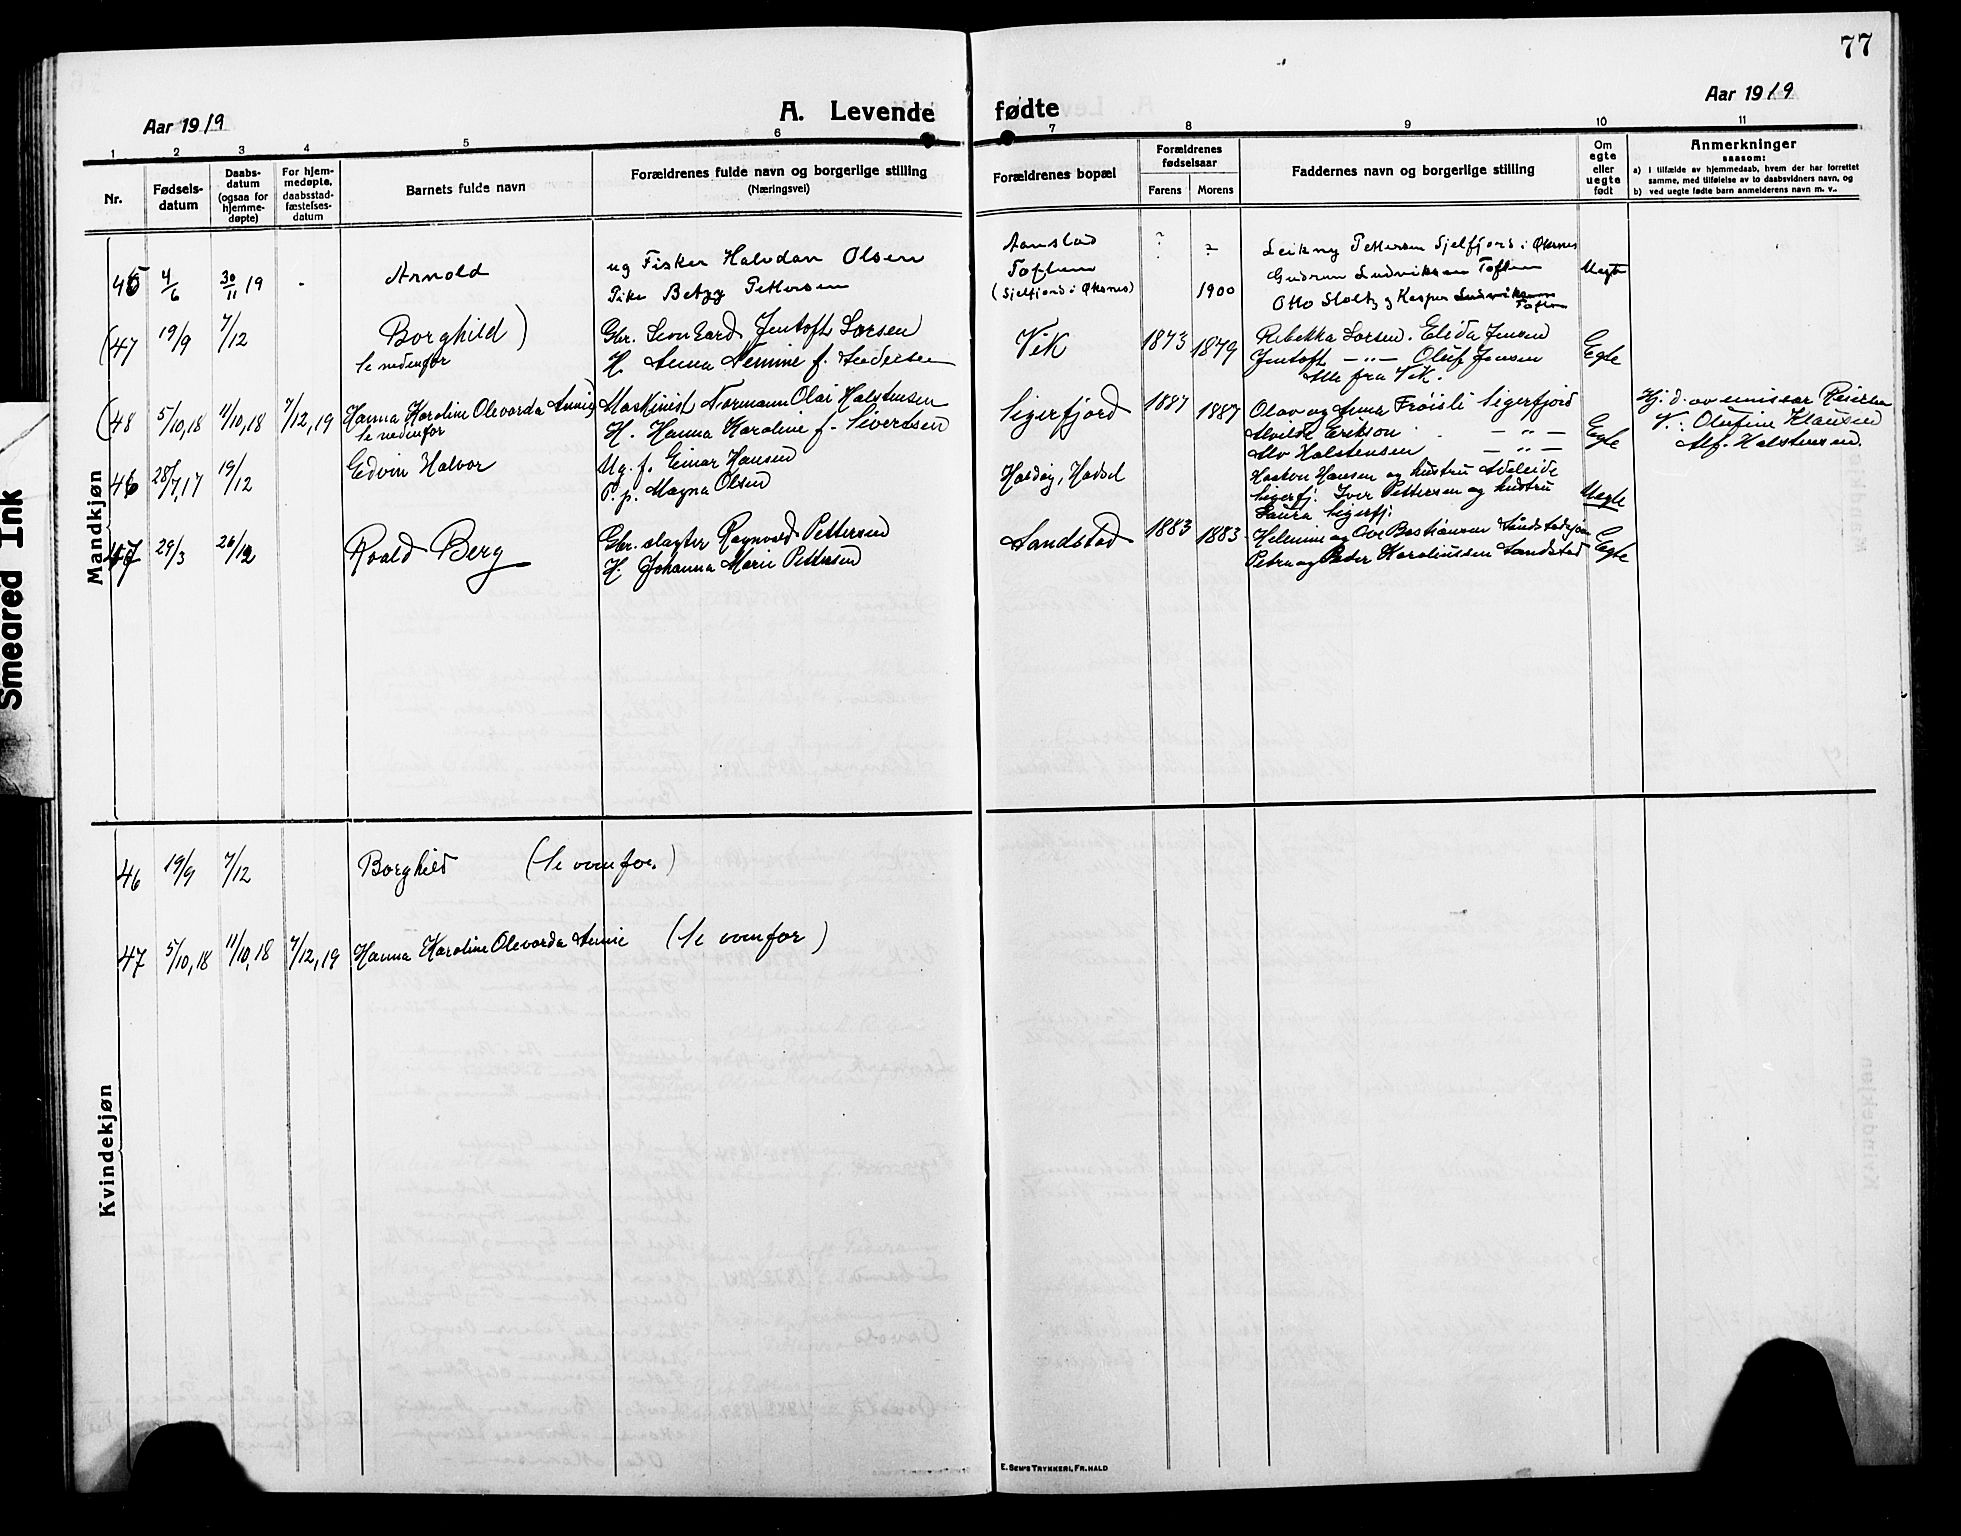 77
Aar 1919
A. Levende fødte
Aar 1919
1 2 3 4 5 6 7 8 9 10 11
Nr.
Fødsels-
datum
Daabs-
datum
(ogsaa for
hjemme-
døpte)
For hjem-
medøpte,
daabsstad-
fæstelses-
datum
Barnets fulde navn
Forældrenes fulde navn og borgerlige stilling
(Næringsvei)
Forældrenes bopæl
Forældrenes
fødselsaar
Farens Morens
Faddernes navn og borgerlige stilling
Om
egte
eller
uegte
født
Anmerkninger
saasom:
a) I tilfælde av hjemmedaab, hvem der har forrettet
samme, med tilføielse av to daabsvidners navn, og
b) ved uegte fødte barn anmelderens navn m. v..
Mandkjøn
45 4/6 30/11 19 - Arnold
ug Fisker Halvdan Olsen
Pike Betzy Pettersen
Aanstad
Toften
(Sjelfjord i Øksnes)
? ?
1900
Leikny Pettersen Sjelfjord i Øksnes
Gudrun Ludviksen Toften
Otto Stoltz og Kasper Ludviksen
Toften
Uegte
(47 19/9 7/12 Borghild)
Se nedenfor
Gbr. Leonhard Jentoft Lorsen
H. Anna Nemine f.
Vik 1873 1879
Rebekka Lorsen. Elida Jensen
Jentoft — „ — Oluf Jensen
Alle fra Vik.
Egte
(48 5/10, 18 11/10, 18 7/12, 19 Hanna Karoline Olevorda Annie
Se nedenfor
Maskinist Normann Olai Halstensen
H. Hanna Karoline f. Sivertsen
Sigerfjord 1887 1887
Olav og Anna Frøisli Sigerfjord
Alvilde Erikson — „ —
Alv Halstensen — „ —
Egte
Hj. d. av emissær
V.: Olufine Klausen
Alf. Halstensen.
46 28/7, 17 19/12 Edvin Halvor
Ug. f. Einar Hansen
P. p. Magna Olsen
Haldøig, Hadsel
Haakon Hansen og hustru Adeleide
Sigerfj. Iver Pettersen og hustru
Laura Sigerfj.
Uegte
47 29/3 26/12 Roald Berg
Gbr. slagter Ragnvald Pettersen
H. Johanna Marie Pettersen
Sandstad 1883 1883
Helmine og Ove Bastiansen
Petra og Peder Karoliussen Sandstad
Egte
Kvindekjøn
46 19/9 7/12 Borghild (Se ovenfor.)
47 5/10, 18 11/10, 18 7/12, 19 Hanna Karoline Olevorda Annie (Se ovenfor)
E. SEM'S TRYKKERI, FR.HALD
Smeared Ink